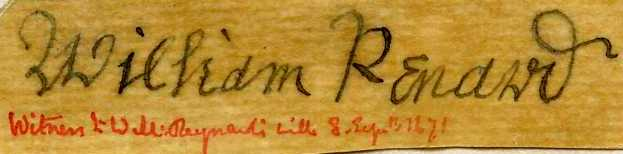 William Renard
Witness to Will. Raynard's will 8 Sept. 1871